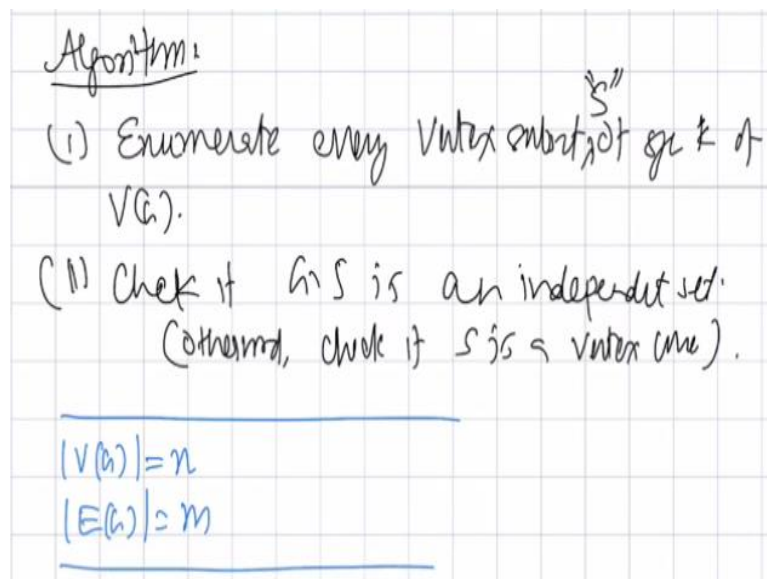 Algorithm:
"S"
(i) Enumerate every vertex subset, of size k of
V(G).
(ii) Check if G\S is an independet set.
(otherwise, check if S is a vertex cover).
|V(G)| = n
|E(G)| = m